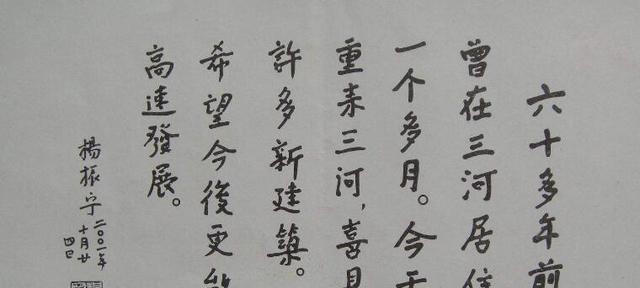 六十多年前
曾在三河居住
一个多月。今天
重来三河，喜見
許多新建築。
希望今後更
高速發展。
楊振宁
二〇〇一年
十月廿
四日